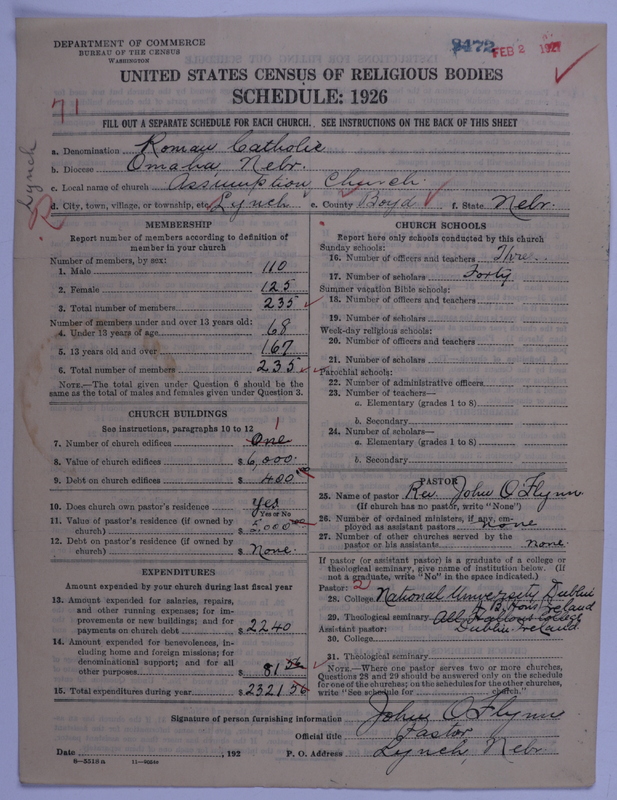 DEPARTMENT OF COMMERCE
BUREAU OF THE CENSUS
WASHINGTON
8472
FEB 2 1927
UNITED STATES CENSUS OF RELIGIOUS BODIES
SCHEDULE: 1926
71
FILL OUT A SEPARATE SCHEDULE FOR EACH CHURCH. SEE INSTRUCTIONS ON THE BACK OF THIS SHEET
Lynch
a. Denomination Roman Catholic
b. Diocese Omaha, Nebr.
c. Local name of church Assumption Church.
d. City, town, village, or township, etc. Lynch e. County Boyd f. State Nebr.
MEMBERSHIP
Report number of members according to definition of
member in your church
Number of members, by sex:
1. Male 110
2. Female 125
3. Total number of members 235
Number of members under and over 13 years old:
4. Under 13 years of age 68
5. 13 years old and over 167
6. Total number of members 235
NOTE.—The total given under Question 6 should be the
same as the total of males and females given under Question 3.
CHURCH BUILDINGS
See instructions, paragraphs 10 to 12
7. Number of church edifices One 1
8. Value of church edifices $ 6,000.
9. Debt on church edifices $ 400 00
10. Does church own pastor's residence yes
Yes or No
11. Value of pastor's residence (if owned by
church) $ 5,000 00
12. Debt on pastor's residence (if owned by
church) $ None.
EXPENDITURES
Amount expended by your church during last fiscal year
13. Amount expended for salaries, repairs,
and other running expenses; for im-
provements or new buildings; and for
payments on church debt $ 2240
14. Amount expended for benevolences, in-
cluding home and foreign missions; for
denominational support; and for all
other purposes $ 81 56
15. Total expenditures during year $ 2321 56
CHURCH SCHOOLS
Report here only schools conducted by this church
Sunday schools:
16. Number of officers and teachers Three
17. Number of scholars Forty
Summer vacation Bible schools:
18. Number of officers and teachers
19. Number of scholars
Week-day religious schools:
20. Number of officers and teachers
21. Number of scholars
Parochial schools:
22. Number of administrative officers
23. Number of teachers—
a. Elementary (grades 1 to 8)
b. Secondary
24. Number of scholars—
a. Elementary (grades 1 to 8)
b. Secondary
PASTOR
25. Name of pastor Rev. John O'Flynn
(If church has no pastor, write "None")
26. Number of ordained ministers, if any, em-
ployed as assistant pastors none
27. Number of other churches served by the
pastor or his assistants none.
If pastor (or assistant pastor) is a graduate of a college or
theological seminary, give name of institution below. (If
not a graduate, write "No" in the space indicated.)
Pastor: 2
28. College National University Dublin
Ireland
29. Theological seminary All Hallows College
Assistant pastor: Dublin. Ireland
30. College
31. Theological seminary
NOTE.—Where one pastor serves two or more churches,
Questions 28 and 29 should be answered only on the schedule
for one of the churches; on the schedules for the other churches,
write "See schedule for church."
Signature of person furnishing information John O'Flynn
Official title Pastor
Date , 192 P. O. Address Lynch, Nebr
8—5516a